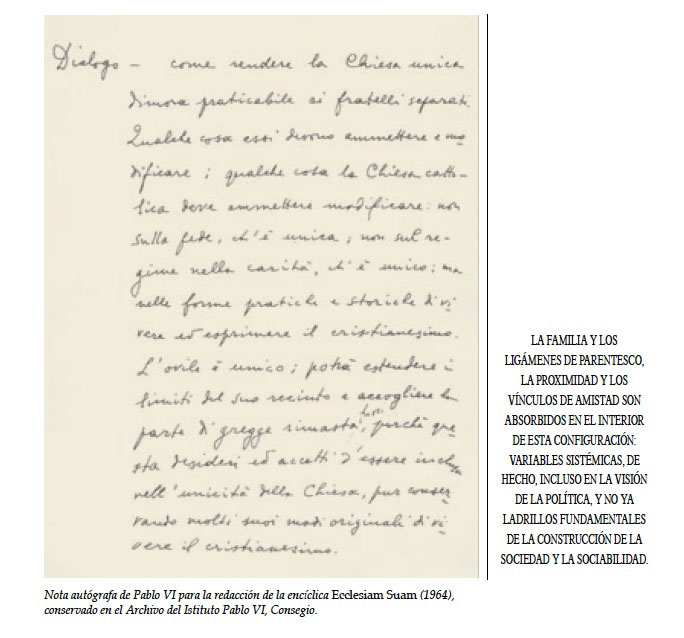 Dialogo – come rendere la Chiesa unica
dimora praticabile ai fratelli separati.
Qualche cosa essi devono ammettere e mo
dificare ; qualche cosa la Chiesa catto-
lica deve ammettere modificare: non
sulla fede, ch'è unica ; non sul re-
gime nella carità, ch'è unico; ma
nelle forme pratiche e storiche di vi
vere ed esprimere il cristianesimo.
L'ovile è unico ; potrà estendere i
limiti del suo recinto e accogliere la
parte di gregge rimasta fuori, purché que
sta desideri ed accetti d'essere inclusa
nell'unicità della Chiesa, pur conser
vando molti suoi modi originali di vi
vere il cristianesimo.
Nota autógrafa de Pablo VI para la redacción de la encíclica Ecclesiam Suam (1964),
conservado en el Archivo del Istituto Pablo VI, Consegio.
LA FAMILIA Y LOS
LIGÁMENES DE PARENTESCO,
LA PROXIMIDAD Y LOS
VÍNCULOS DE AMISTAD SON
ABSORBIDOS EN EL INTERIOR
DE ESTA CONFIGURACIÓN:
VARIABLES SISTÉMICAS, DE
HECHO, INCLUSO EN LA VISIÓN
DE LA POLÍTICA, Y NO YA
LADRILLOS FUNDAMENTALES
DE LA CONSTRUCCIÓN DE LA
SOCIEDAD Y LA SOCIABILIDAD.